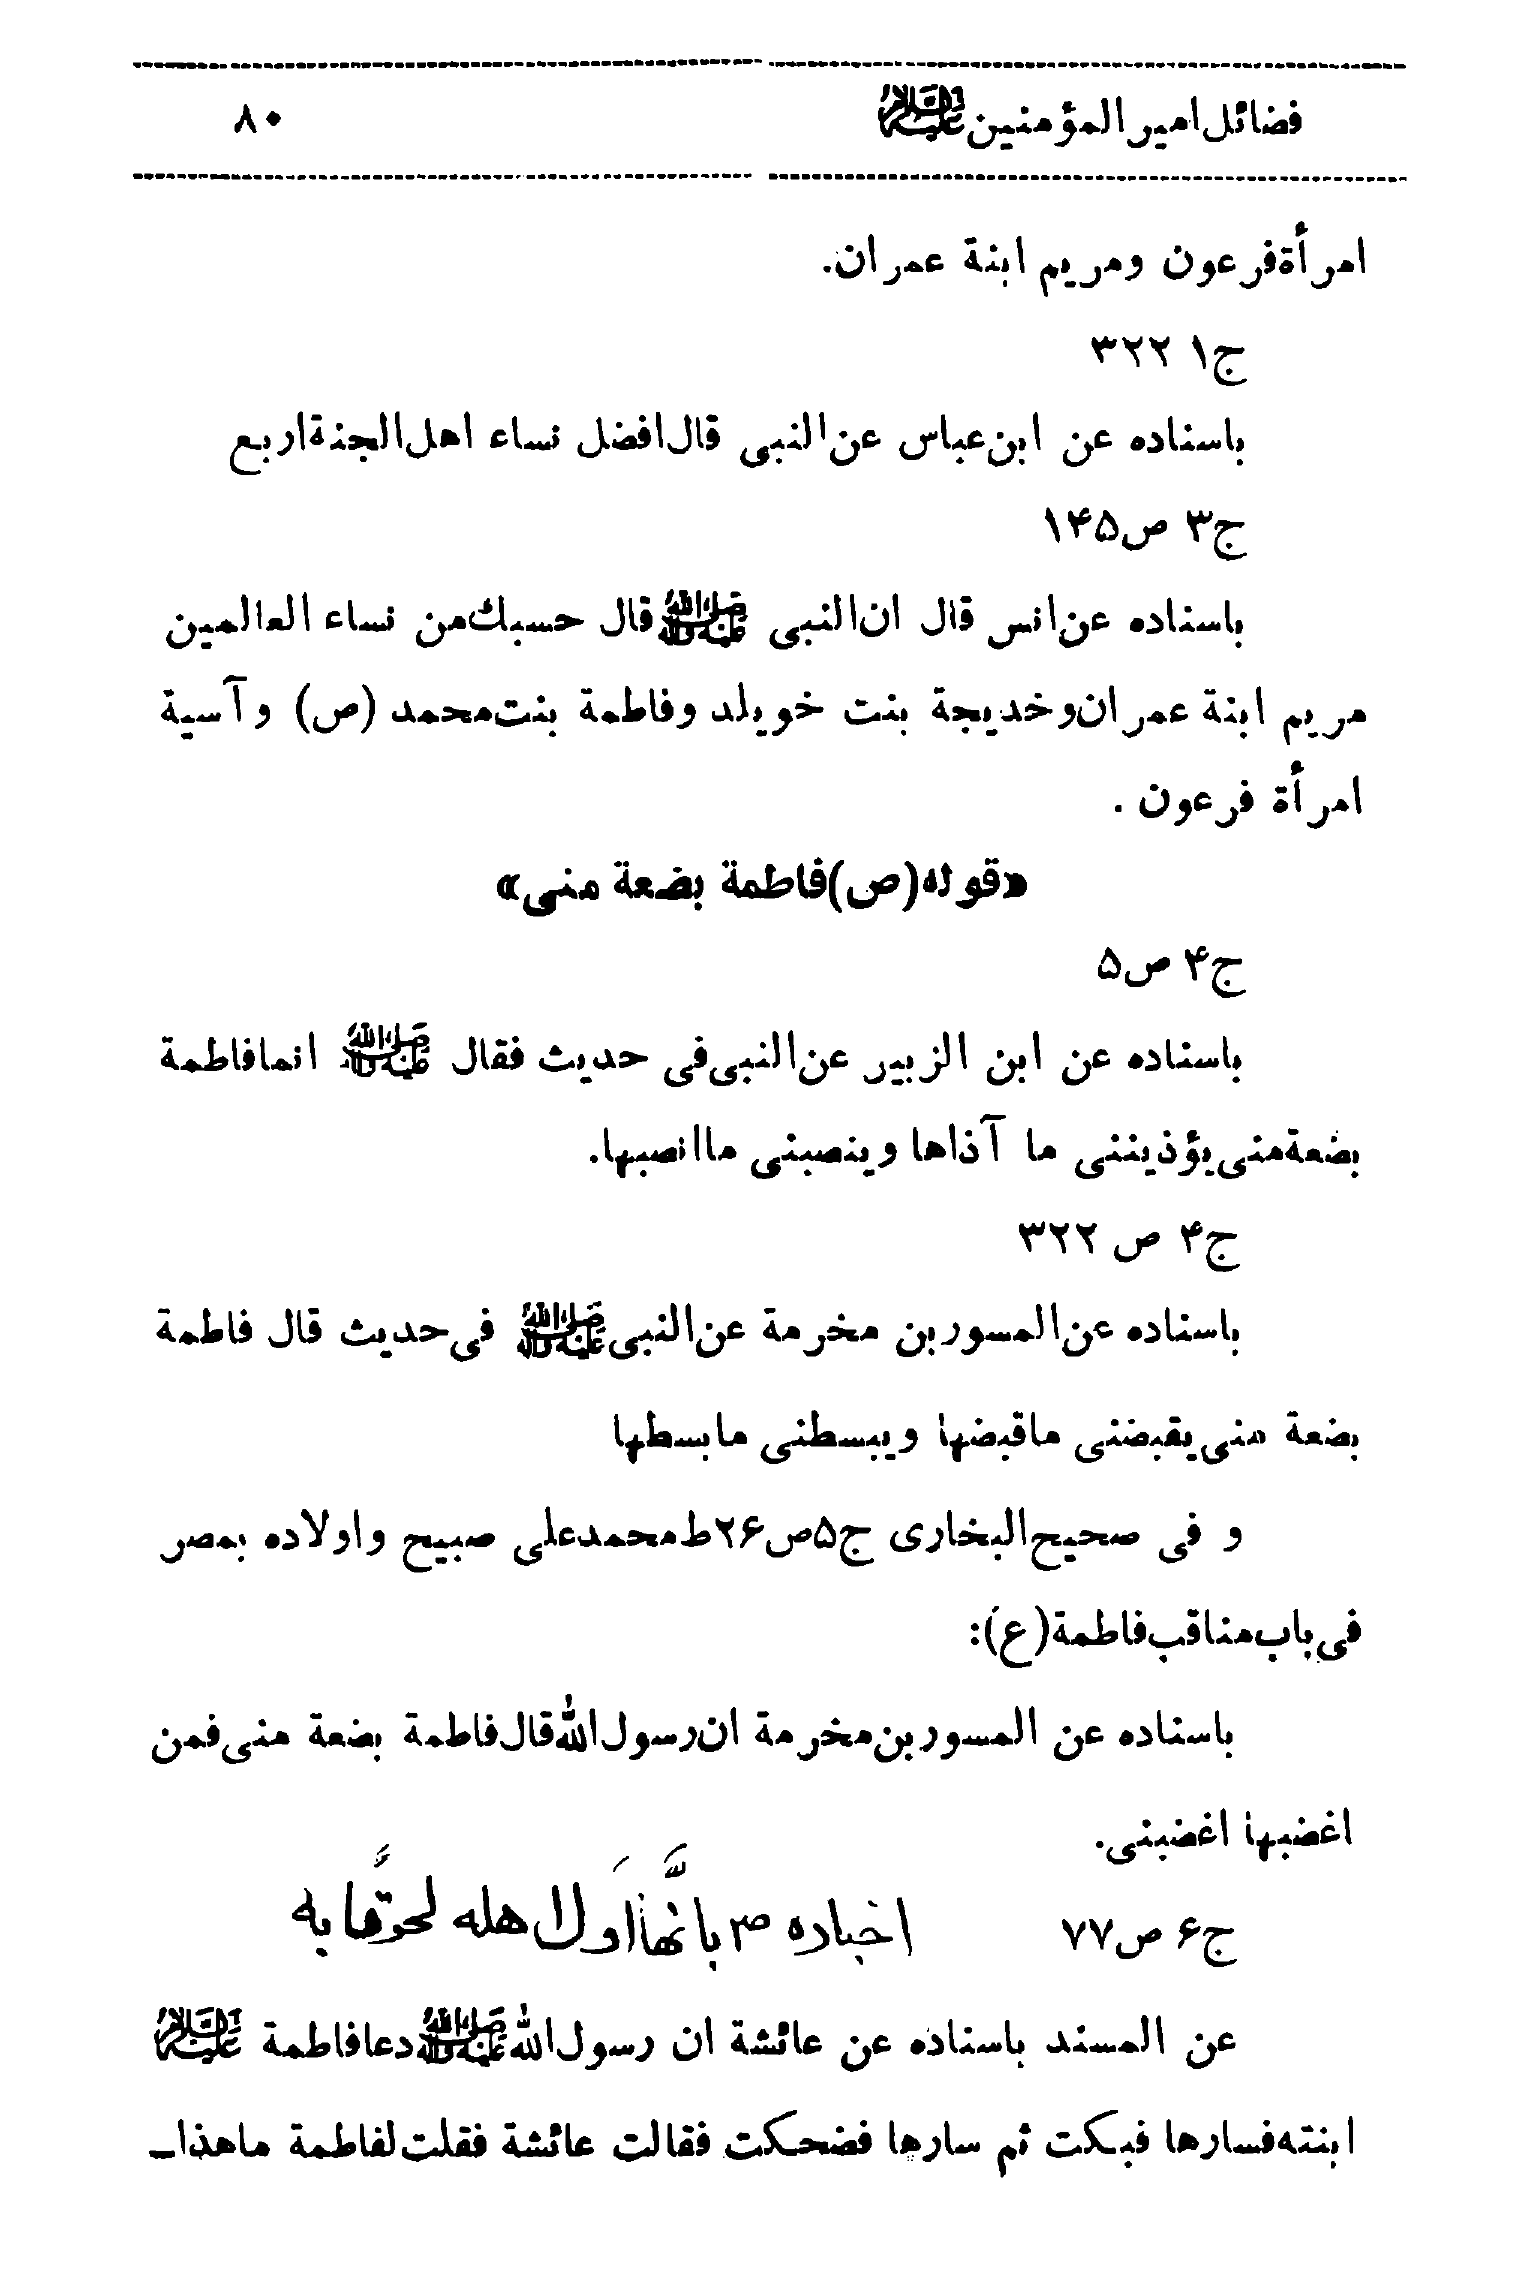 فضائل امیر المؤمنین علیه السلام ۸۰
امرأة فرعون ومریم ابنة عمران.
ج۱ ۳۲۲
باسناده عن ابن عباس عن النبی قال افضل نساء اهل الجنة اربع
ج۳ ص۱۴۵
باسناده عن انس قال ان النبی ﷺ قال حسبك من نساء العالمین
مریم ابنة عمران وخدیجة بنت خویلد وفاطمة بنت محمد (ص) وآسیة
امرأة فرعون .
«قوله (ص) فاطمة بضعة منی»
ج۴ ص۵
باسناده عن ابن الزبیر عن النبی فی حدیث فقال ﷺ انما فاطمة
بضعة منی یؤذیننی ما آذاها وینصبنی ما انصبها.
ج۴ ص ۳۲۲
باسناده عن المسور بن مخرمة عن النبی ﷺ فی حدیث قال فاطمة
بضعة منی یقبضنی ماقبضها ویبسطنی مابسطها
و فی صحیح البخاری ج۵ ص۲۶ ط محمد علی صبیح واولاده بمصر
فی باب مناقب فاطمة (ع):
باسناده عن المسور بن مخرمة ان رسول الله قال فاطمة بضعة منی فمن
اغضبها اغضبنی.
ج۶ ص۷۷ اخباره ص بانّها اوّل اهله لحوقًا به
عن المسند باسناده عن عائشة ان رسول الله ﷺ دعا فاطمة علیها السلام
ابنته فسارها فبکت ثم سارها فضحکت فقالت عائشة فقلت لفاطمة ما هذا ـ